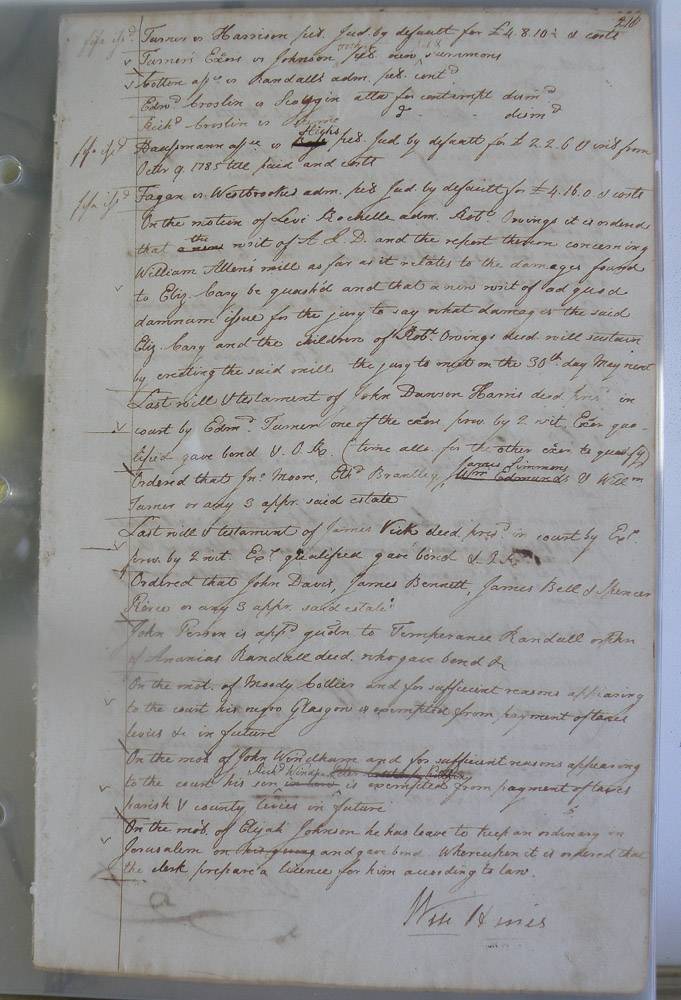 210
fi fa iss^d. Turner vs Harrison pet. Jud. by default for £ 4.8.10½ & costs
Turner's Exors vs Johnson pet. new summons
Cotton ass^ee vs Randall's adm. pet. cont^d.
Edm^d Croslin vs Scoggin atta for contempt dism^d
Rich^d Croslin vs Same & dism^d
fi fa iss^d Haussmann ass^ee vs Hight pet. Jud by default for £ 2.2.6 & int^t from
Octr 9. 1785 till paid and costs
fi fa iss^d Fagan vs Westbrook's adm. pet Jud. by default for £ 4.16.0 & costs
On the motion of Levi Rochelle adm. Rob^t Owings it is ordered
that the writ of A. Q. D. and the report thereon concerning
William Allen's mill as far as it relates to the damages found
to Eliz. Cary be quash'd and that a new writ of ad quod
damnum issue for the jury to say what damages the said
Eliz. Cary and the children of Rob^t. Owings deced. will sustain
by erecting the said mill the jury to meet on the 30^th. day May next
Last will & testament of John Dawson Harris deced pres^d. in
court by Edm^d. Turner one of the exors. prov. by 2 wit. Exor qua-
lified gave bond & O.R. (time allo. for the other exor to qualify)
Ordered that Jn^o Moore, Eth^d Brantley, James Simmons Wm Edmunds & Will^m
Turner or any 3 appr. said estate
Last will & testament of James Vick deced. pres^d. in court by Ex^r.
prov. by 2 wit. Ex^r. qualified gave bond & O.R.
Ordered that John Davis, James Bennett, James Bell & Spencer
Pierce or any 3 appr. said estate
John Person is app^d guardn to Temperance Randall orphn
of Ananias Randall deced. who gave bond &
On the mot. of Moody Collier and for sufficient reasons appearing
to the court his negro Glasgow is exempted from payment of taxes
levies &c in future
On the mot of John Windham and for sufficient reasons appearing
to the court his son Rich^d Windham is exempted from payment of taxes
parish & county levies in future
On the mot. of Elijah Johnson he has leave to keep an ordinary in
Jerusalem on his giving and gave bond Whereupon it is ordered that
the clerk prepare a licence for him according to law.
Wm Hines